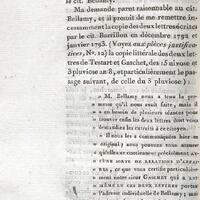 le cit. Bellamy.
Ma demande parut raisonnable au cit.
Bellamy, et il promit de me remettre in-
cessamment la copie des deux lettres écrites
par le cit. Borrillon en décembre 1792 et
janvier 1793. (Voyez aux pièces justifica-
tives, N.° 12) la copie littérale des deux let-
tres de Testart et Gaschet, des 15 nivose
et 3 pluviose an 8, et particulièrement le pas-
sage suivant, de celle du 3 pluviose):
» M. Bellamy nous a tenu la pro-
messe qu'il nous avait faite, mais il
a eu besoin de plusieurs séances pour
trouver les deux lettres dont vous lui
demandiez les extraits, citoyen.
» Il nous les a communiquées en
original; nous pouvons vous assurer
qu'elles commencent et annoncent
une sorte de relations d'affai-
res, ce que vous certifie particuliè-
rement notre sieur Gaschet qui a lu
lui-même les deux lettres portant
l'adresse individuelle de Bellamy, et